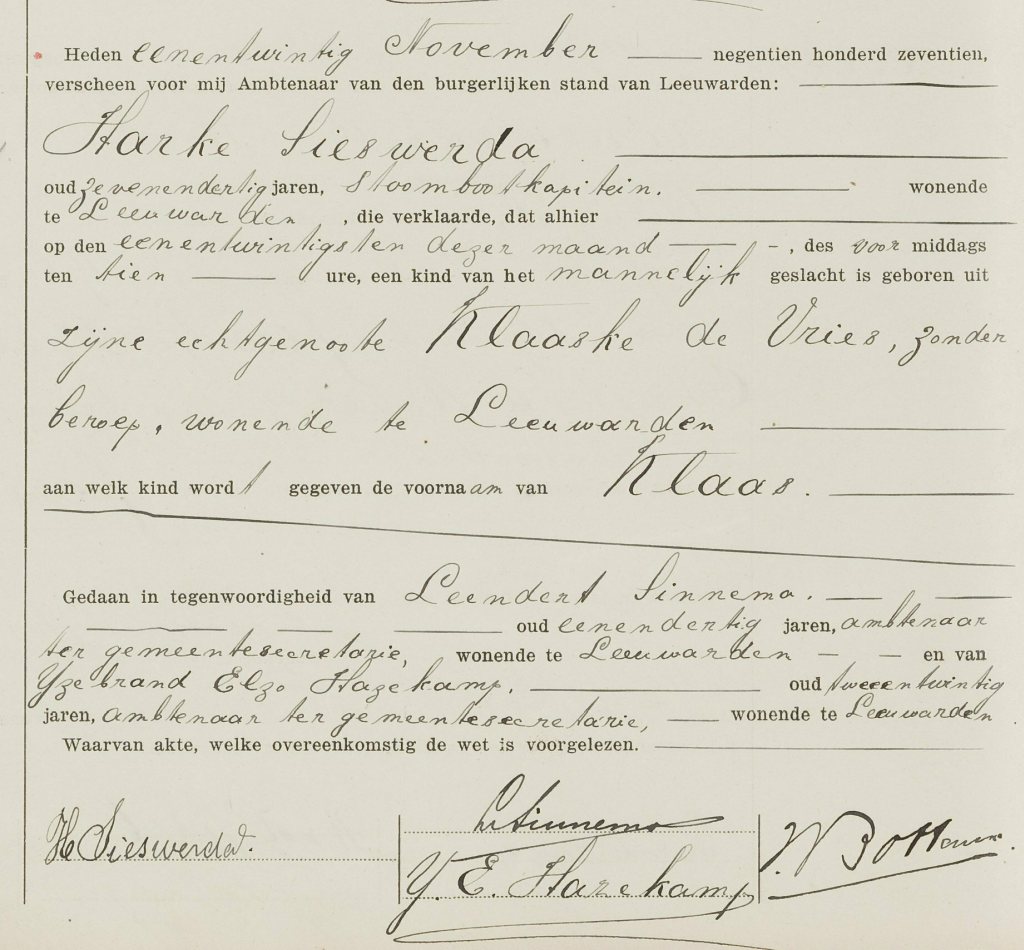 Heden eenentwintig November negentien honderd zeventien,
verscheen voor mij Ambtenaar van den burgerlijken stand van Leeuwarden:
Harke Sieswerda
oud zevenendertig jaren, stoombootkapitein. wonende
te Leeuwarden, die verklaarde, dat alhier
op den eenentwintigsten dezer maand -, des voormiddags
ten tien ure, een kind van het mannelijk geslacht is geboren uit
zijne echtgenoote Klaaske de Vries, zonder
beroep, wonende te Leeuwarden
aan welk kind wordt gegeven de voornaam van Klaas.
Gedaan in tegenwoordigheid van Leendert Sinnema.
oud eenendertig jaren, ambtenaar
ter gemeentesecretarie, wonende te Leeuwarden en van
Yzebrand Elzo Hazekamp, oud tweeentwintig
jaren, ambtenaar ter gemeentesecretarie, wonende te Leeuwarden.
Waarvan akte, welke overeenkomstig de wet is voorgelezen.
H Sieswerda.
L. Sinnema
Y. E. Hazekamp